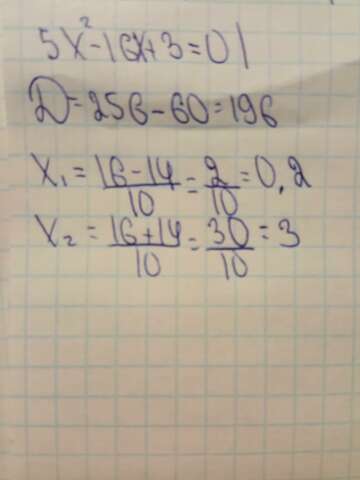 5x²-16x+3=0|
D=256-60=196
x₁=16-14/10=2/10=0,2
x₂=16+14/10=30/10=3